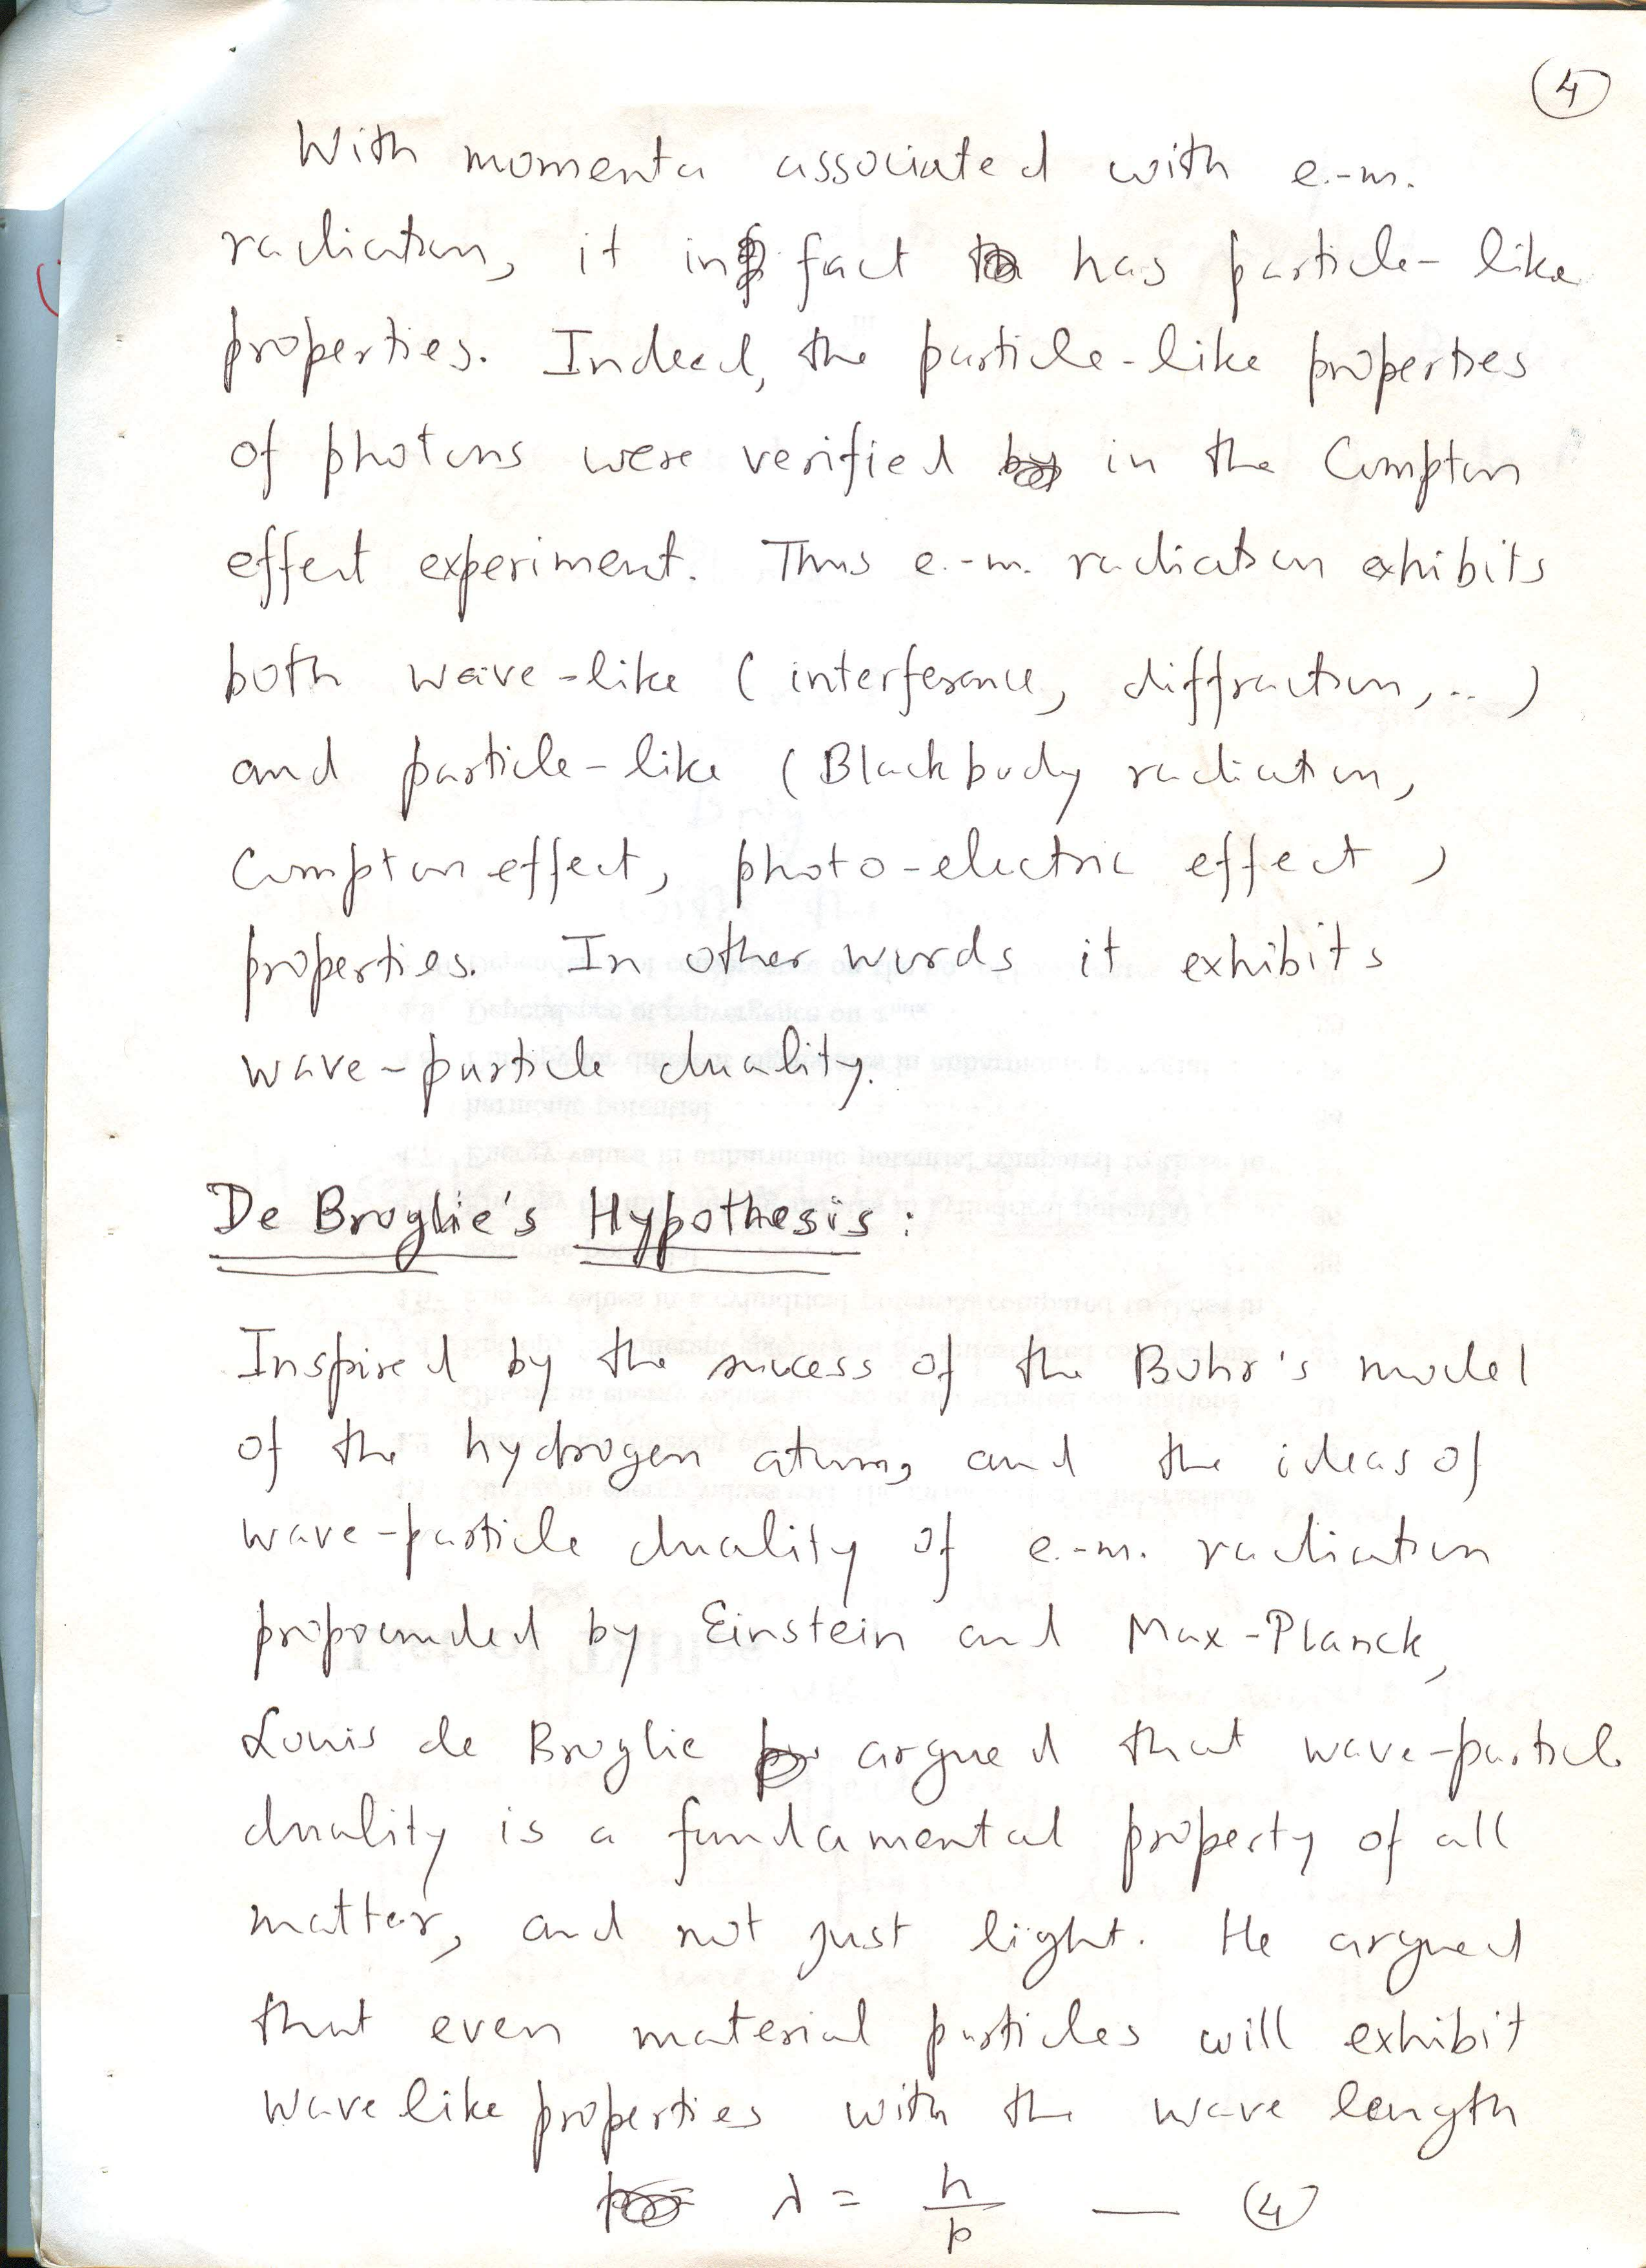 4
With momenta associated with e.-m.
radiation, it in fact has particle-like
properties. Indeed, the particle-like properties
of photons were verified in the Compton
effect experiment. Thus e.-m. radiation exhibits
both wave-like (interference, diffraction,..)
and particle-like (Blackbody radiation,
Compton effect, photo-electric effect)
properties. In other words it exhibits
wave-particle duality.
De Broglie's Hypothesis:
Inspired by the success of the Bohr's model
of the hydrogen atom, and the ideas of
wave-particle duality of e.-m. radiation
propounded by Einstein and Max-Planck,
Louis de Broglie argued that wave-particle
duality is a fundamental property of all
matter, and not just light. He argued
that even material particles will exhibit
wave like properties with the wave length
λ = h/p — (4)